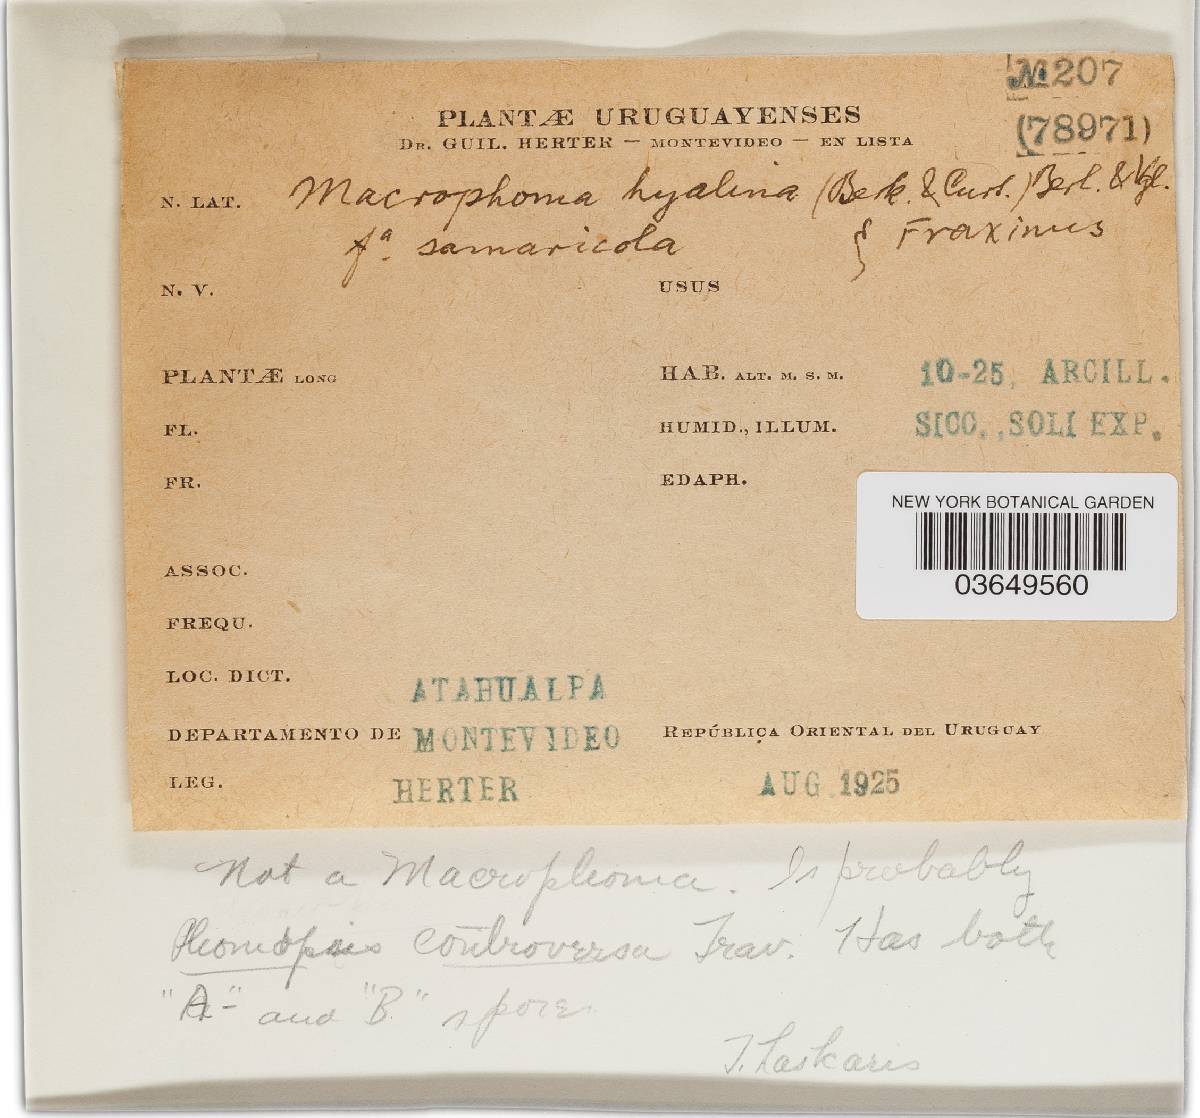 № 207
(78971)
PLANTÆ URUGUAYENSES
DR. GUIL. HERTER — MONTEVIDEO — EN LISTA
N. LAT. Macrophoma hyalina (Berk. & Curt.) Berl. & Vgl.
fª. samaricola } Fraxinus
N. V. USUS
PLANTÆ LONG HAB. ALT. M. S. M. 10-25, ARCILL.
FL. HUMID., ILLUM. SICC., SOLI EXP.
FR. EDAPH.
NEW YORK BOTANICAL GARDEN
03649560
ASSOC.
FREQU.
LOC. DICT. ATAHUALPA
DEPARTAMENTO DE MONTEVIDEO REPÚBLIÇA ORIENTAL DEL URUGUAY
LEG. HERTER AUG 1925
Not a Macrophoma. Is probably
Phomopsis controversa Trav. Has both
"A-" and "B." spores
T. Laskaris